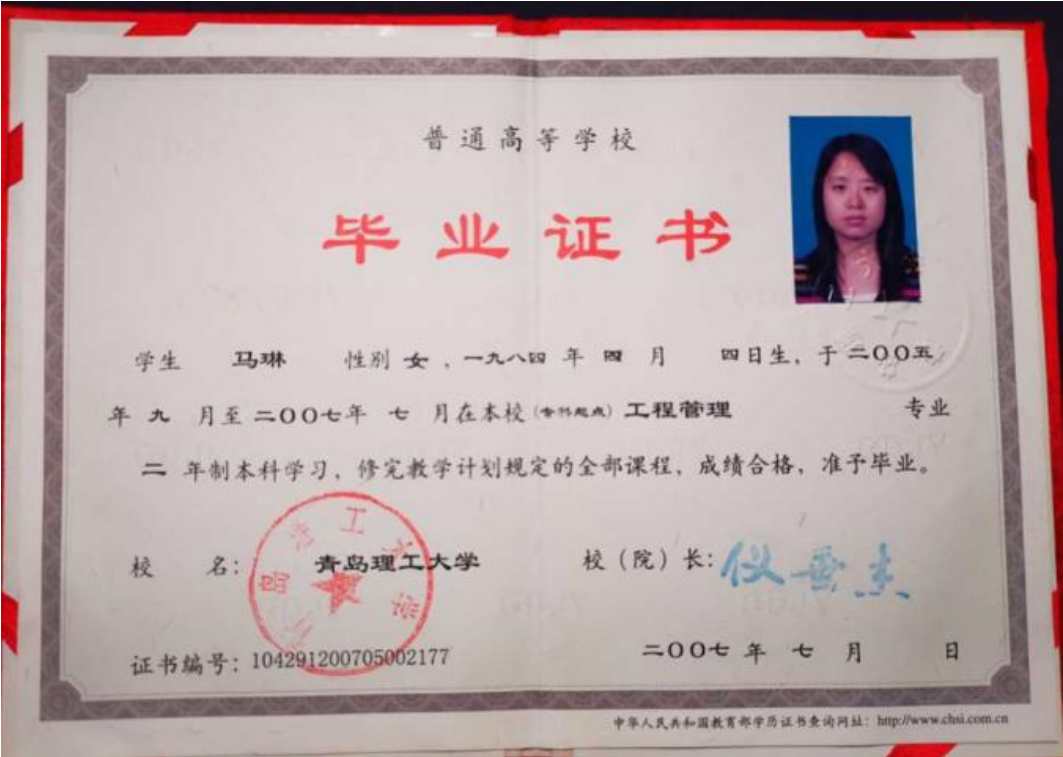 普通高等学校
毕业证书
学生 马琳 性别 女，一九八四 年 四 月 四日生，于 二〇〇五
年 九 月至 二〇〇七年 七 月在本校(专科起点) 工程管理 专业
二 年制本科学习，修完教学计划规定的全部课程，成绩合格，准予毕业。
校 名： 青岛理工大学 校（院）长：仪垂杰
青岛理工大学
证书编号：104291200705002177 二〇〇七 年 七 月 日
中华人民共和国教育部学历证书查询网址：http://www.chsi.com.cn